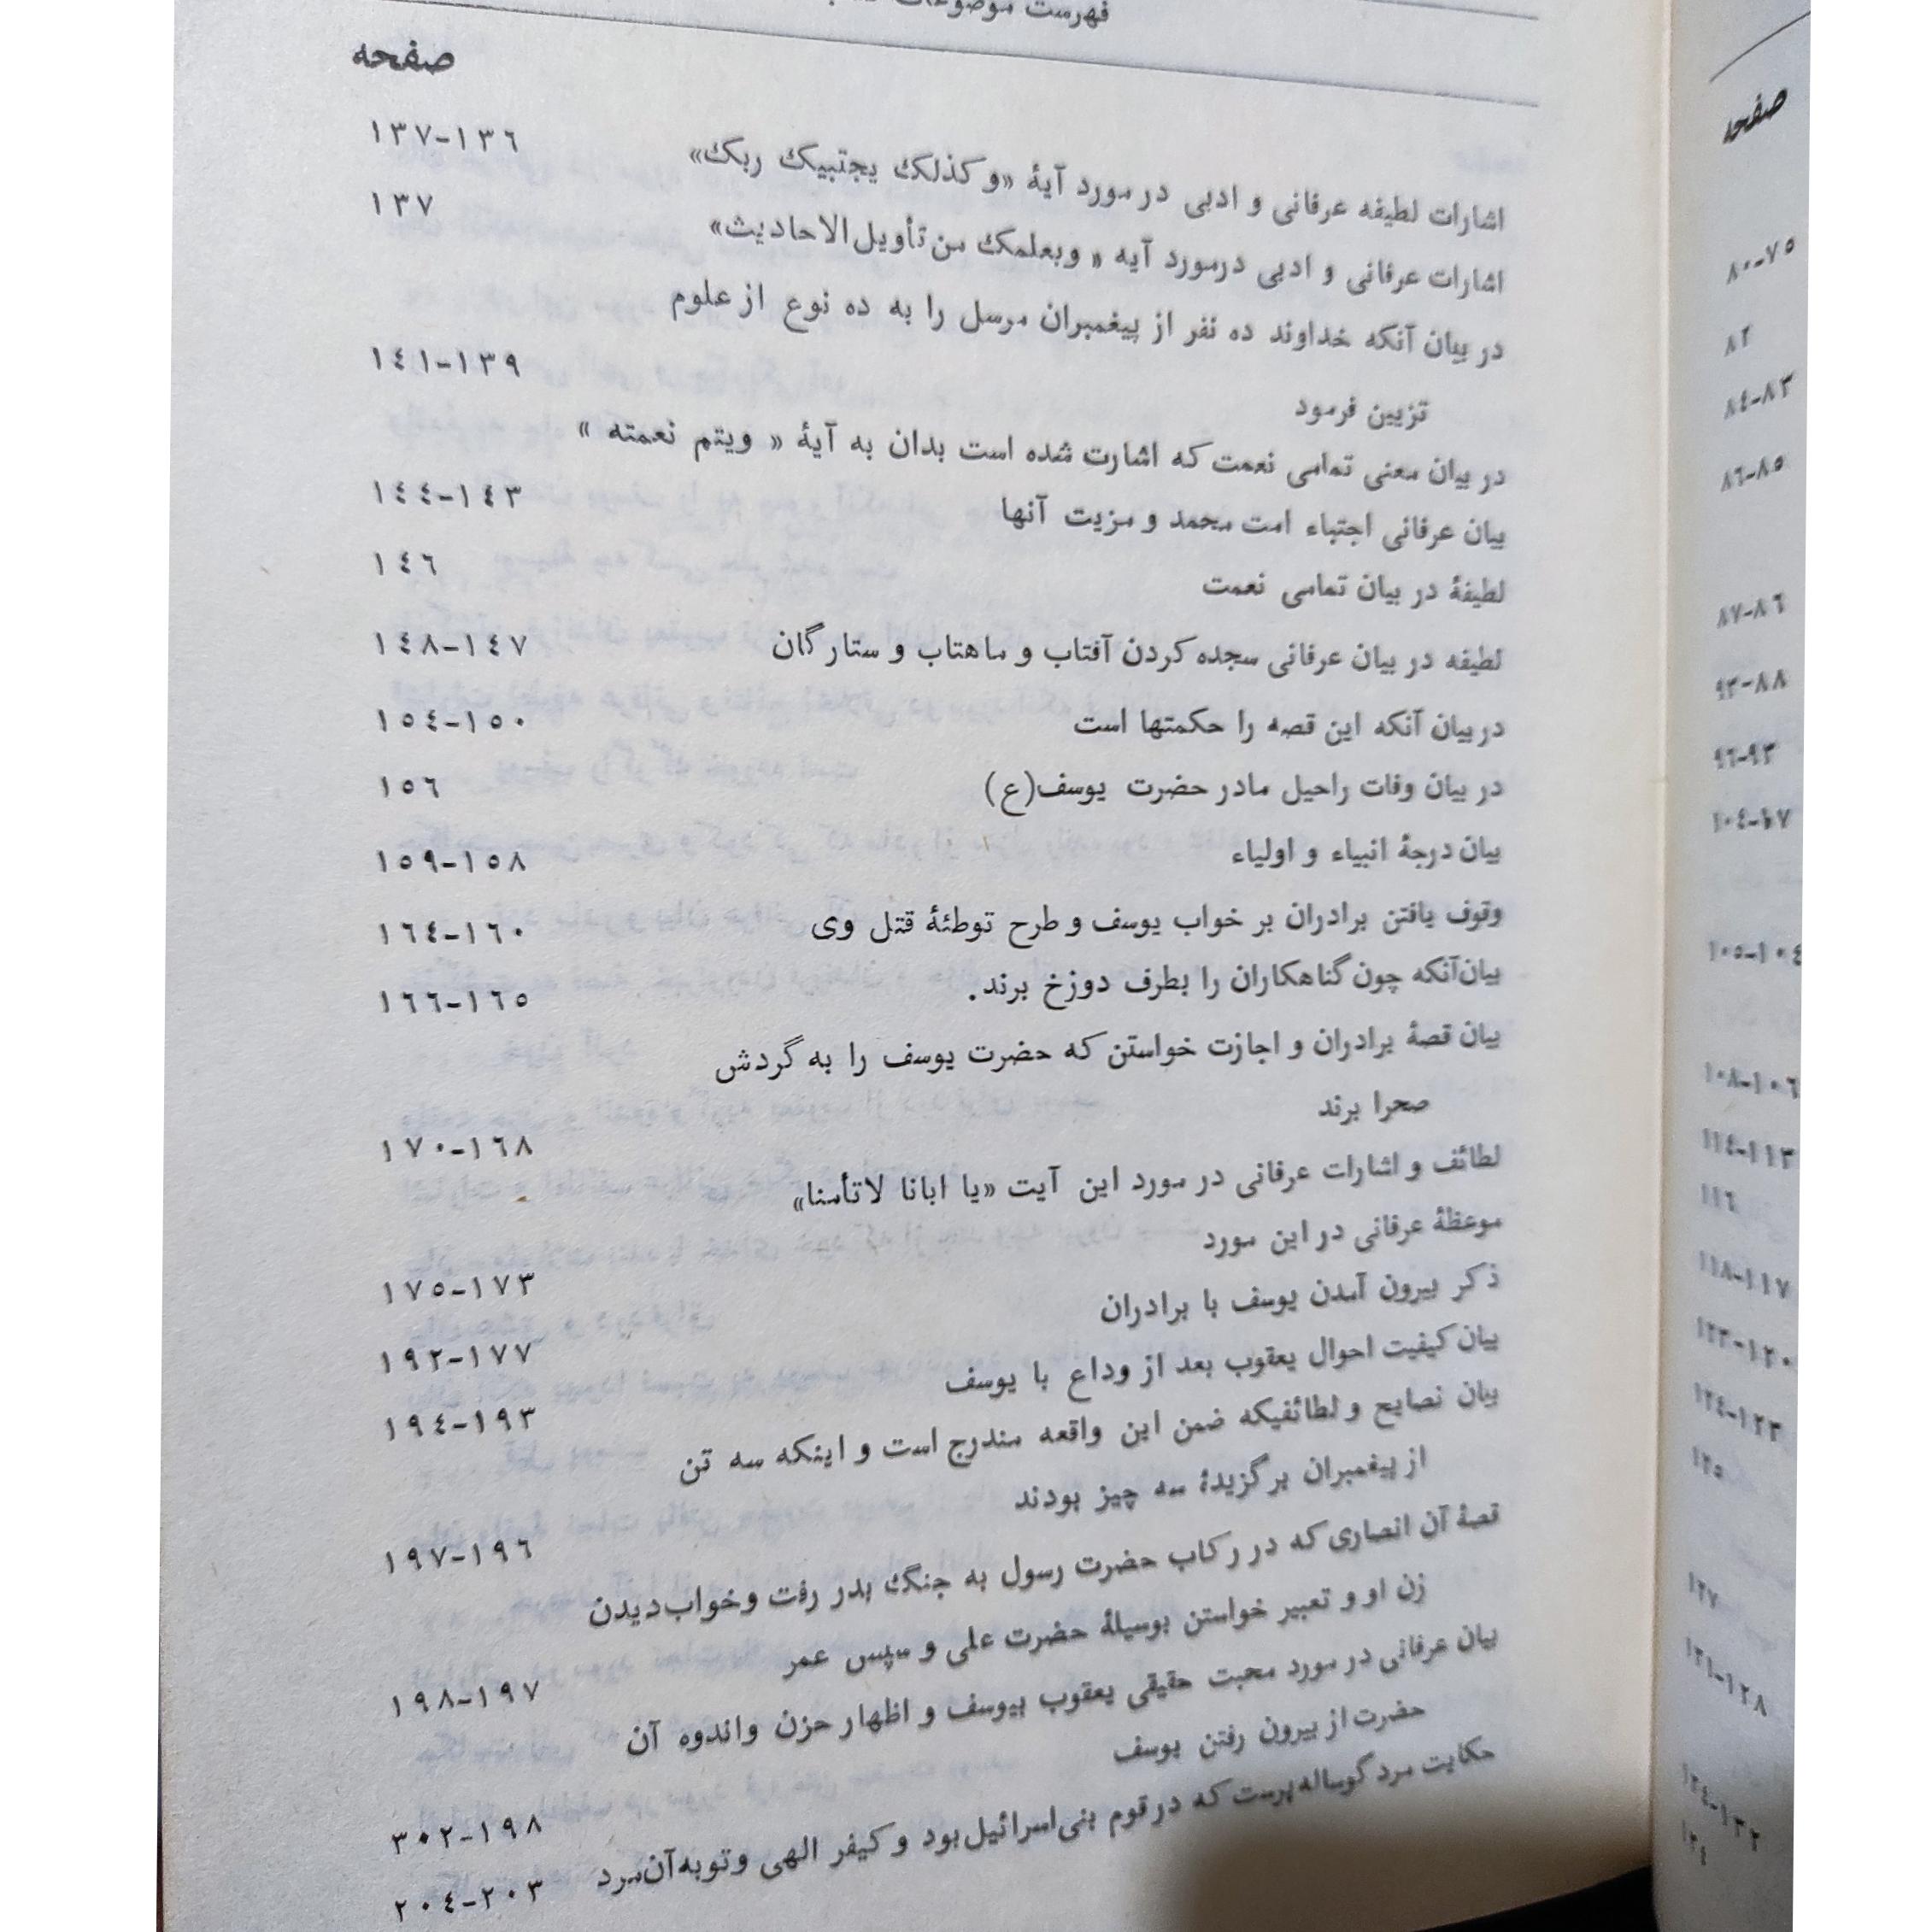 فهرست موضوعات
صفحه
اشارات لطیفه عرفانی و ادبی در مورد آیۀ «و کذلك یجتبیك ربك» ۱۳۶-۱۳۷
اشارات عرفانی و ادبی درمورد آیه « وبعلمك من تأویل الاحادیث» ۱۳۷
در بیان آنکه خداوند ده نفر از پیغمبران مرسل را به ده نوع از علوم
تزیین فرمود ۱۳۹-۱۴۱
در بیان معنی تمامی نعمت که اشارت شده است بدان به آیۀ « ویتم نعمته »
بیان عرفانی اجتباء امت محمد و مزیت آنها ۱۴۳-۱۴۴
لطیفۀ در بیان تمامی نعمت ۱۴۶
لطیفه در بیان عرفانی سجده کردن آفتاب و ماهتاب و ستارگان ۱۴۷-۱۴۸
در بیان آنکه این قصه را حکمتها است ۱۵۰-۱۵۴
در بیان وفات راحیل مادر حضرت یوسف(ع) ۱۵۶
بیان درجۀ انبیاء و اولیاء ۱۵۸-۱۵۹
وقوف یافتن برادران بر خواب یوسف و طرح توطئۀ قتل وی ۱۶۰-۱۶۴
بیان آنکه چون گناهکاران را بطرف دوزخ برند. ۱۶۵-۱۶۶
بیان قصۀ برادران و اجازت خواستن که حضرت یوسف را به گردش
صحرا برند ۱۶۸-۱۷۰
لطائف و اشارات عرفانی در مورد این آیت «یا ابانا لاتأمنا»
موعظۀ عرفانی در این مورد ۱۷۳-۱۷۵
ذکر بیرون آمدن یوسف با برادران ۱۷۷-۱۹۲
بیان کیفیت احوال یعقوب بعد از وداع با یوسف ۱۹۳-۱۹۴
بیان نصایح و لطائفیکه ضمن این واقعه مندرج است و اینکه سه تن
از پیغمبران برگزیدۀ سه چیز بودند ۱۹۶-۱۹۷
قصۀ آن انصاری که در رکاب حضرت رسول به جنگ بدر رفت و خواب دیدن
زن او و تعبیر خواستن بوسیلۀ حضرت علی و سپس عمر ۱۹۷-۱۹۸
بیان عرفانی در مورد محبت حقیقی یعقوب بیوسف و اظهار حزن واندوه آن
حضرت از بیرون رفتن یوسف ۱۹۸-۳۰۲
حکایت مرد گوساله‌پرست که در قوم بنی‌اسرائیل بود و کیفر الهی و توبه آن مرد ۲۰۳-۲۰۴
صفحه
۷۵-۸۰
۸۲
۸۳-۸۴
۸۵-۸۶
۸۶-۸۷
۸۸-۹۳
۹۳-۹۶
۹۷-۱۰۴
۱۰۴-۱۰۵
۱۰۶-۱۰۸
۱۱۳-۱۱۴
۱۱۶
۱۱۷-۱۱۸
۱۲۰-۱۲۳
۱۲۳-۱۲۴
۱۲۵
۱۲۷
۱۲۸-۱۳۱
۱۳۲-۱۳۴